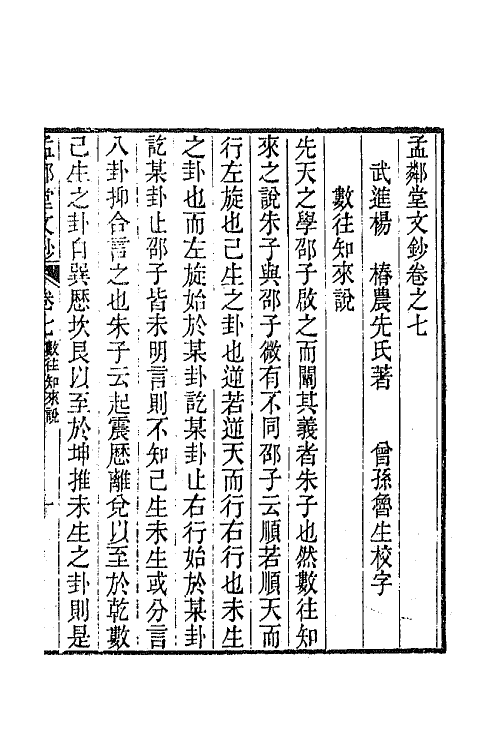 孟鄰堂文鈔卷之七
武進楊　椿農先氏著　曾孫魯生校字
數往知來說
先天之學邵子啟之而闡其義者朱子也然數往知
來之說朱子與邵子微有不同邵子云順若順天而
行左旋也已生之卦也逆若逆天而行右行也未生
之卦也而左旋始於某卦訖某卦止右行始於某卦
訖某卦止邵子皆未明言則不知已生未生或分言
八卦抑合言之也朱子云起震歷離兌以至於乾數
已生之卦自巽歷坎艮以至於坤推未生之卦則是
孟鄰堂文鈔　卷七數往知來說　一